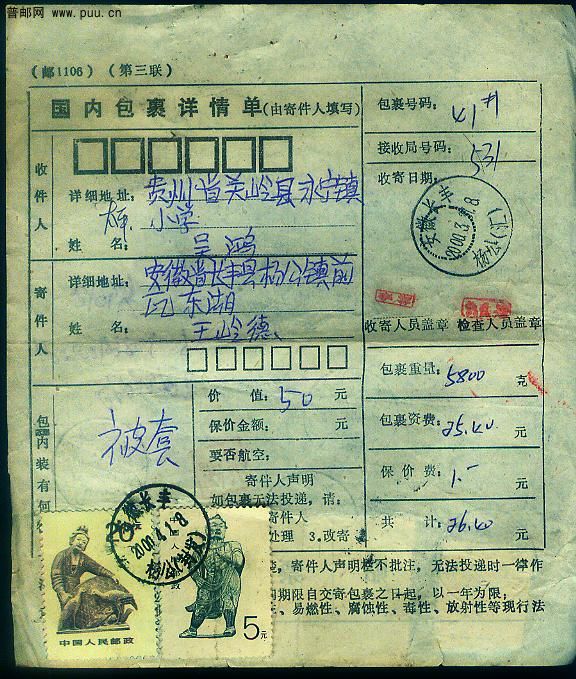 普邮网 www.puu.cn
(邮1106) (第三联)
国内包裹详情单(由寄件人填写)
包裹号码: 41#
接收局号码: 531
收寄日期:
安徽长丰
2000.3.
杨公
收件人
详细地址: 贵州省关岭县永宁镇
小学
姓 名: 吴鸿
寄件人
详细地址: 安徽省长丰县杨公镇前
东湖
姓 名: 王岭德
收寄人员盖章 检查人员盖章
包裹重量: 5800 克
包裹资费: 25.40 元
保价费: 1.- 元
共 计: 26.40 元
包内装有何
被套
价 值: 50 元
保价金额: 元
要否航空:
寄件人声明
如包裹无法投递, 请:
寄件人
处理 3.改寄
安徽长丰
2000.4.1.8
中国人民邮政
邮政
5元
寄件人声明栏不批注, 无法投递时一律作
期限自交寄包裹之日起, 以一年为限;
、易燃性、腐蚀性、毒性、放射性等现行法